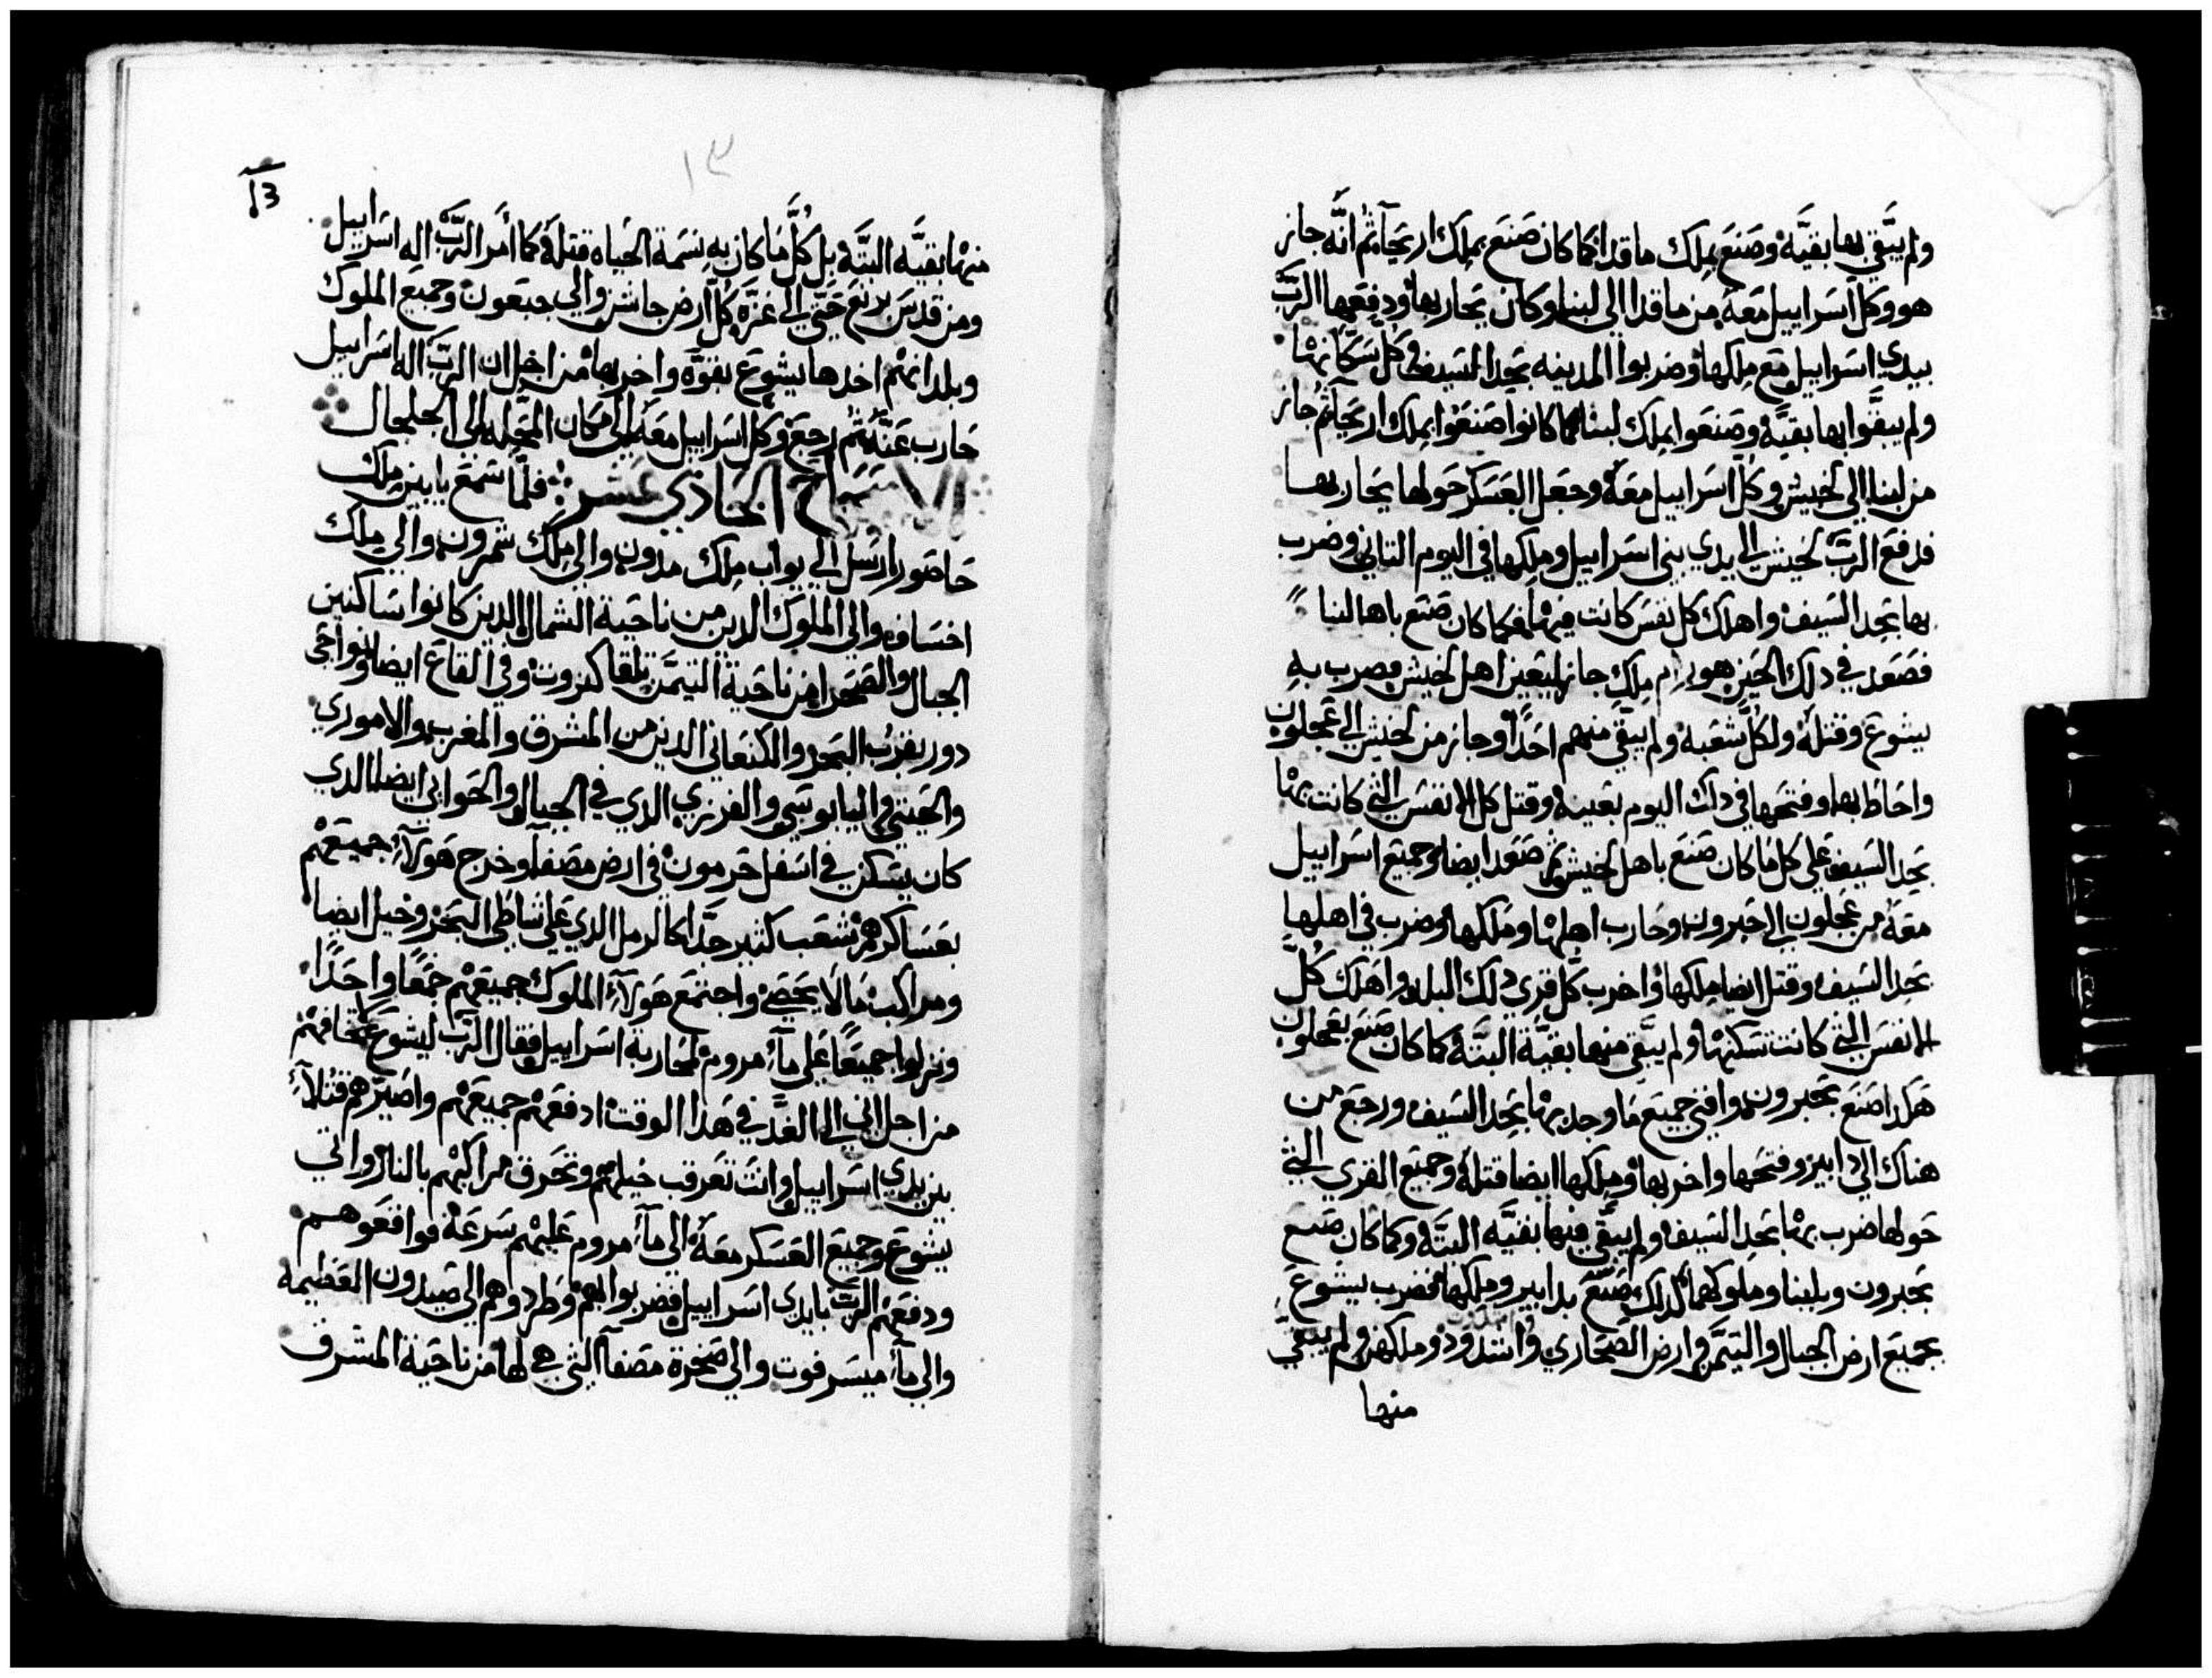 ولم يبقي بها بقيَّه وصنع بملك ماقدا كما كان صنع بملك اريحا ثم انه جاز
هو وكل اسراييل معه من ماقدا الي لبنا وكان يحاربها ودفعها الرب
بيدي اسراييل مع ملكها وضربوا المدينه بحد السيف في كل سكانها
ولم يبقوا بها بقيه وصنعوا بملك لبنا كما كانوا صنعوا بملك اريحا ثم جاز
من لبنا الي لخيش وكل اسراييل معه وجعل العسكر حولها يحاربها
فدفع الرب لخيش الي يدي بني اسراييل وملكها في اليوم التاني وضرب
بها بحد السيف واهلك كل نفس كانت فيها كما كان صنع باها لبنا
فصعد في دلك الحين هورام ملك جازر ليعين اهل لخيش فضرب به
يشوع وقتله ولكل شعبه ولم يبقي منهم احدًا وجاز من لخيش الي عجلون
واحاط بها وفتحها في داك اليوم بعينه وقتل كل الانفس التي كانت بها
بحد السيف علي كل ما كان صنع باهل لخيش ثم صعد ايضا وجميع اسراييل
معه من عجلون الي حبرون وحارب اهلها وملكها وضرب في اهلها
بحد السيف وقتل ايضا ملكها واخرب كل قري دلك البلد واهلك كل
الانفس التي كانت تسكنها ولم يبقي منها بقيه البتة كما كان صنع بعجلون
هكدا صنع بحبرون وافني جميع ما وجد بها بحد السيف ورجع من
هناك الي دابير وفتحها واخربها وملكها ايضا قتله وجميع القري التي
حولها ضرب بها بحد السيف ولم يبقي منها بقيه البته وكما كان صنع
بحبرون وبلبنا وملوكهما كدلك صنع بدابير وملكها فضرب يشوع
بجميع ارض الجبال والتيمن وارض الصحاري واشدود وملكهن ولم يبقي
منها
١٣
13
منها بقيه البته بل كل ما كان به نسمة الحياه قتله كما أمر الرب اله اسراييل
ومن قدس برنع حتي الي غزه كل ارض جاشن والي جبعون وجميع الملوك
وبلدانهم اخدها يشوع بقوه واخربها من اجل ان الرب اله اسراييل
حارب عنه ثم رجع وكل اسراييل معه الي مكان المحله الي الجلجال
الاصحاح الحادي عشر فلما سمع يابين ملك
حاصور ارسل الي يواب ملك مدون والي ملك شمرون والي ملك
اخساف والي الملوك الدين من ناحية الشمال الدين كانوا ساكنين
الجبال والصحرا من ناحية التيمن تلقا كنروت وفي القاع ايضا ونواحي
دور بقرب البحر والكنعاني الدين من المشرق والمغرب والاموري
والحيثي واليابوسي والفرزي الدي في الجبال والحواني ايضا الدي
كان يسكن في اسفل حرمون في ارض مصفا وخرج هولاء جميعهم
بعساكرهم شعب كتير جدًا كالرمل الدي علي شاطي البحر وخيل ايضا
ومراكب ما لا يحصي واجتمع هولاء الملوك جميعهم جمعًا واحدًا
ونزلوا جميعًا علي ماء مروم لمحاربة اسراييل فقال الرب ليشوع لا تخافهم
من اجل اني الي الغد في هدا الوقت ادفعهم جميعهم واصيرهم قتلاء
بين يدي اسراييل وانت تعرقب خيلهم وتحرق مراكبهم بالنار واتي
يشوع وجميع العسكر معه الي ماء مروم عليهم سرعة فواقعوهم
ودفعهم الرب بايدي اسراييل فضربوا بهم وطردوهم الي صيدون العظيمه
والي ماء ميسرفوت والي صخرة مصفا التي هي لها من ناحية المشرق